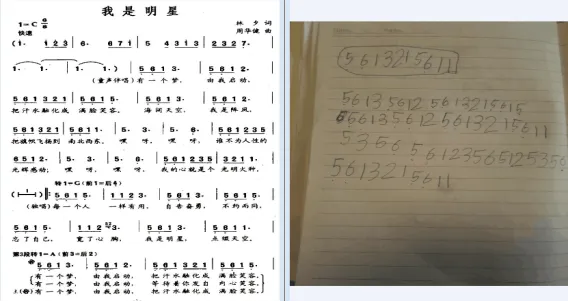 我是明星
1=C 6/8
林夕 词
快速
周华健 曲
(1· 1 2 3 | 6· 6 7 1 | 5 4 3 1 3 | 2 3 2 7· |
1· 1· | 1· 1·) | 5 6 1 3· | 5 6 1 2· |
(童声伴唱)有一个梦, 由我启动,
5 6 1 3 2 1 | 5 6 1 5· | 5 6 1 3· | 5 6 1 2· |
把汗水融化成 满脸笑容, 海阔天空, 我是阵风,
5 6 1 3 2 1 | 5 6 1 1· | 5· 3· | 5· 6· | 5 6 1 2 3 5 |
把旗帜飞扬到 南北西东, 嘿 呀, 嘿 呀, 谁不为人性的
6 5 1 2· | 5· 3· | 5· 6· | 5 6 1 2 3 5 | 3 2 1 1· |
光辉感动; 嘿 呀, 嘿 呀, 我的心就是个 光明火种,
转1=G(前1=后4)
5 6 1 5· | 1 1 2 3· | 5 6 1 3· | 5 6 1 2· |
(独唱)每一个人 一样有用, 自告奋勇, 不约而同,
5 6 1 5· | 1 1 2 3· | 5 6 1 3· | 5 6 1 5· |
忘了自己, 宽了心胸, 我是明星, 点缀天空,
第3段转1=A(前3=后2)
5 6 1 3· | 5 6 1 2· | 5 6 1 3 2 1 | 5 6 1 5· |
有一个梦, 由我启动, 把汗水融化成 满脸笑容,
有一个梦, 由我启动, 等待着你发自 内心笑容,
有一个梦, 由我启动, 把汗水融化成 满脸笑容,
5 6 1 3 2 1 5 6 1 1
5 6 1 3 5 6 1 2 5 6 1 3 2 1 5 6 1 5
5 6 1 3 5 6 1 2 5 6 1 3 2 1 5 6 1 1
5 3 5 6 5 6 1 2 3 5 6 5 1 2 5 3 5 6
5 6 1 3 2 1 5 6 1 1